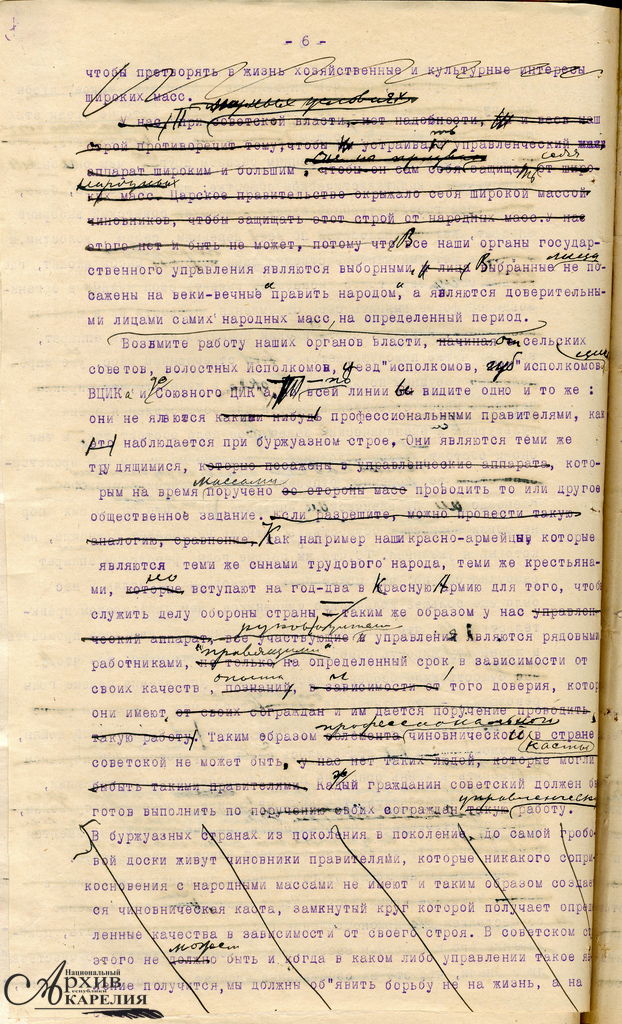 - 6 -
чтобы претворять в жизнь хозяйственные и культурные интересы
широких масс.
У нас, при советской власти, нет надобности, и весь наш
строй противоречит тому, чтобы устраивать управленческий
аппарат широким и большим, чтобы он сам себя защищал от широ-
народных
ких масс. Царское правительство окружало себя широкой массой
чиновников, чтобы защищать этот строй от народных масс. У нас
этого нет и быть не может, потому что Все наши органы государ-
лица
ственного управления являются выборными, и лица Выбранные не по-
сажены на веки-вечные "править народом", а являются доверительны-
ми лицами самих народных масс, на определенный период.
Возьмите работу наших органов власти, начиная от сельских
советов, волостных Исполкомов, уезд"исполкомов, губ"исполкомов,
ВЦИКа и до Союзного ЦИК'а, по всей линии вы видите одно и то же :
они не являются какими нибудь профессиональными правителями, как
это наблюдается при буржуазном строе, Они являются теми же
трудящимися, которые посажены в управленческие аппарата, кото-
массами
рым на время поручено со стороны масс проводить то или другое
общественное задание. Если разрешите, можно провести такую
аналогию, сравнение. Как например наши красно-армейцы, которые
являются теми же сынами трудового народа, теми же крестьяна-
но
ми, которые вступают на год-два в Красную Армию для того, чтоб
служить делу обороны страны, - таким же образом у нас управлен-
руководители
ческий аппарат, все участвующие в управлении являются рядовыми
"правящими"
работниками, но только на определенный срок в зависимости от
опыта и
своих качеств, познаний, в зависимости от того доверия, котор
они имеют от своих сограждан и им дается поручение проводить
профессиональной
такую работу. Таким образом элемента чиновнической (в стране
касты)
советской не может быть, у нас нет таких людей, которые могли
бы быть такими правителями. Каждый гражданин советский должен бы
управленческую
готов выполнить по поручению своих сограждан такую работу.
В буржуазных странах из поколения в поколение, до самой гробо-
вой доски живут чиновники правителями, которые никакого сопри-
косновения с народными массами не имеют и таким образом создае
ся чиновническая каста, замкнутый круг которой получает опре
ленные качества в зависимости от своего строя. В советском ст
может
этого не должно быть и когда в каком либо управлении такое яв
ление получится, мы должны об"явить борьбу не на жизнь, а на
Национальный
Архив
Республики
КАРЕЛИЯ